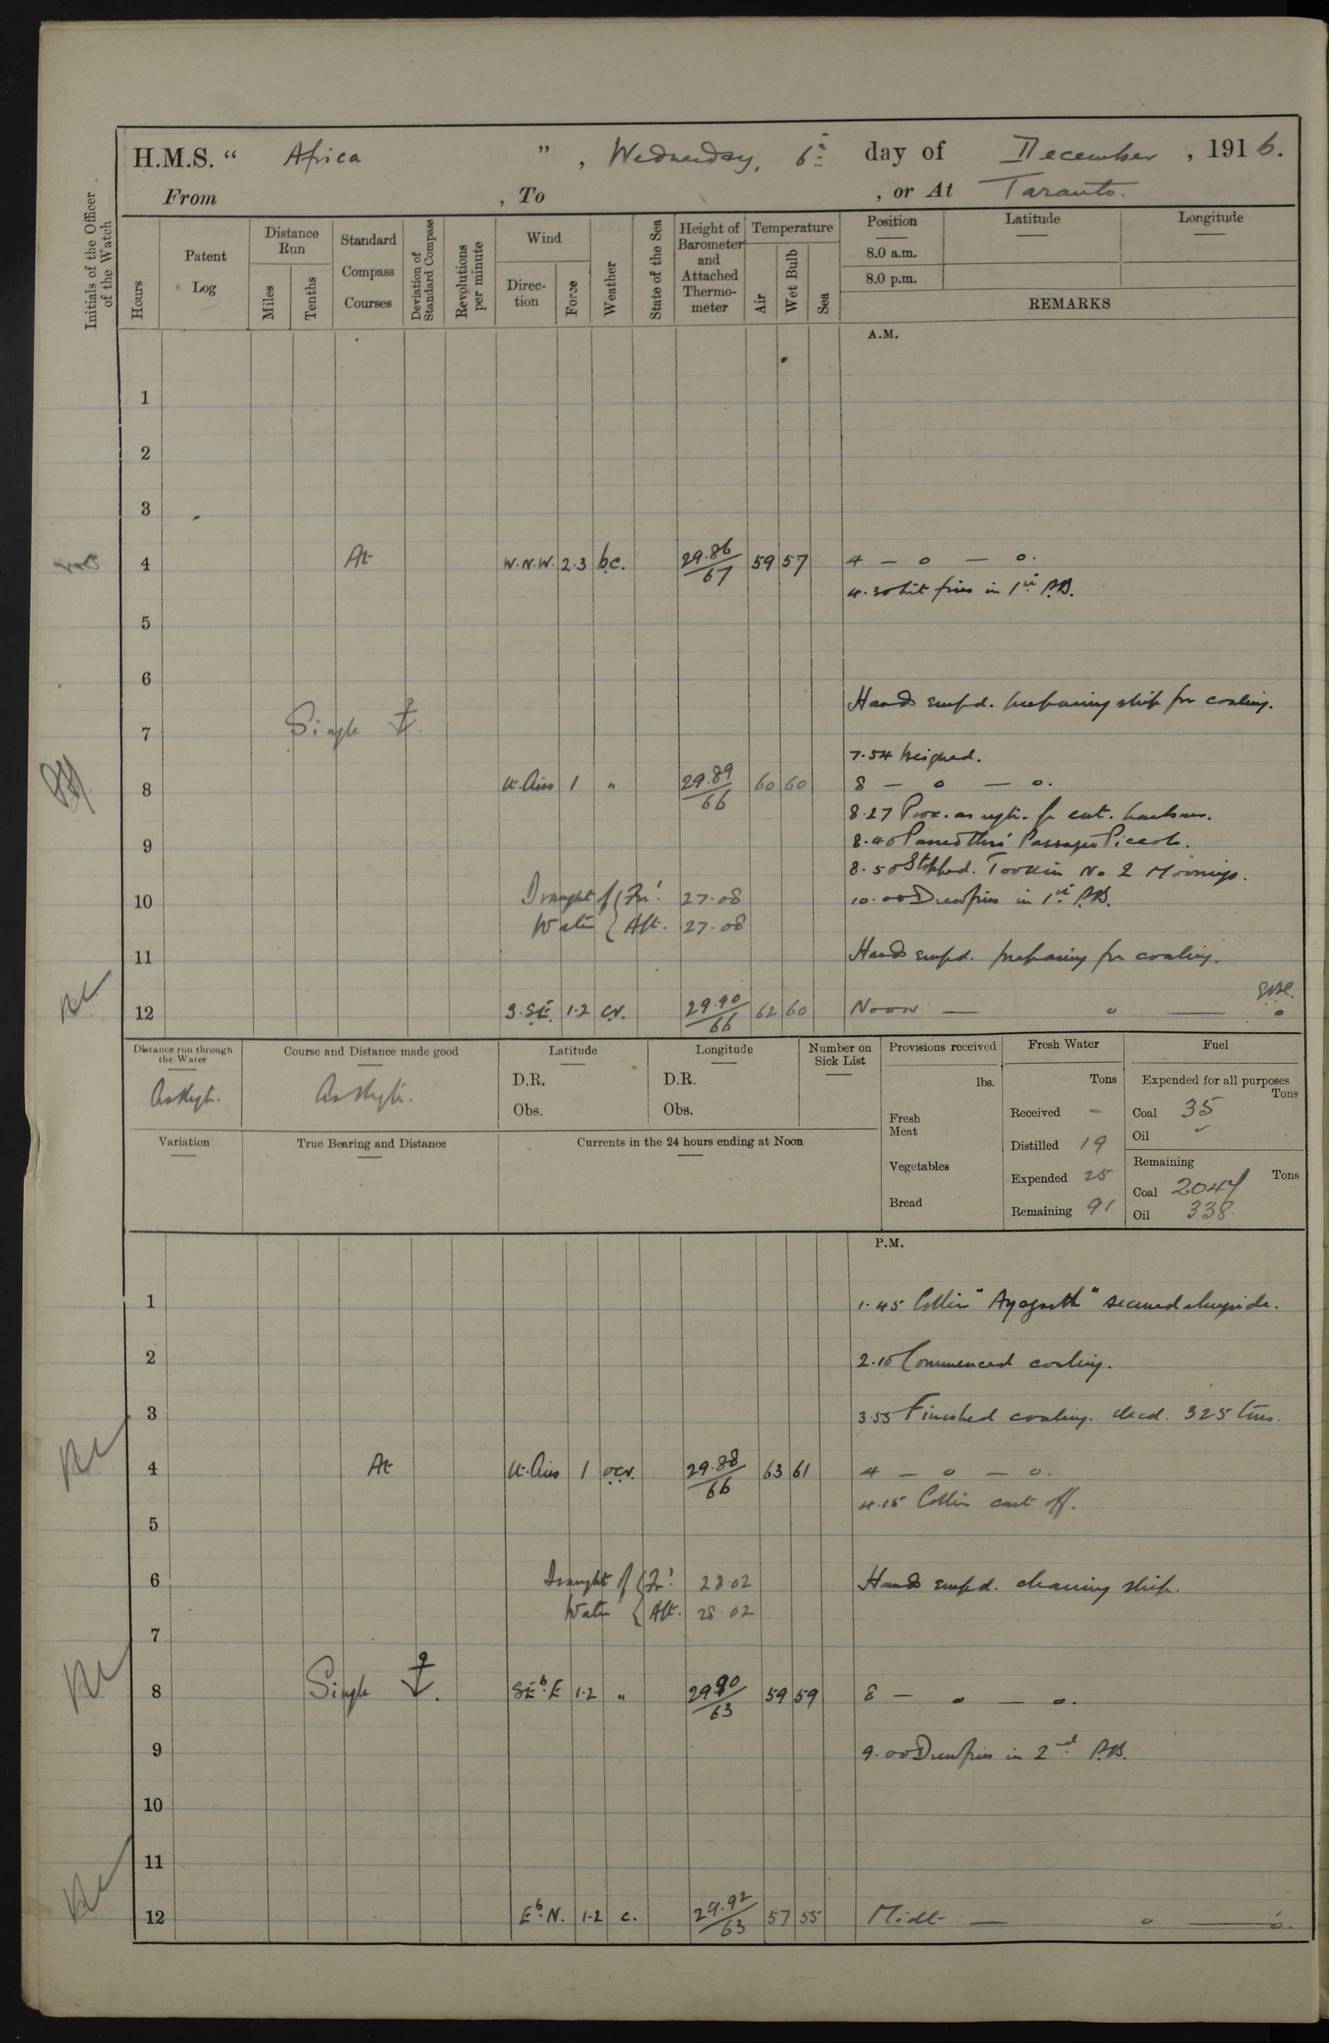 H.M.S. “ Africa ” , Wednesday, 6th day of December , 1916.
From , To , or At Taranto.
Initials of the Officer of the Watch
Hours
Patent Log
Distance Run
Miles
Tenths
Standard Compass Courses
Deviation of Standard Compass
Revolutions per minute
Wind
Direction
Force
Weather
State of the Sea
Height of Barometer and Attached Thermometer
Temperature
Air
Wet Bulb
Sea
Position Latitude Longitude
8.0 a.m.
8.0 p.m.
REMARKS
A.M.
1
2
3
4 At W.N.W. 2.3 b.c. 29.86/67 59 57 4 — o — o.
4.30 Lit fires in 1st P.B.
5
6
Hands empd. preparing ship for coaling.
7 Single
7.54 Weighed.
8 Lt. Airs 1 " 29.89/66 60 60 8 — o — o.
8.27 Proc. as reqte. for ent. harbour.
9 8.40 Passed thro' Passage Piccolo.
8.50 Stopped. Took in No 2 Moorings.
10 Draught of Water { For'd 27.08 10.00 Drew fires in 1st P.B.
Aft. 27.08
11 Hands empd. preparing for coaling.
12 S.SE. 1.2 c.v. 29.90/66 62 60 Noon — o — o
Distance run through the Water
Course and Distance made good
Latitude
Longitude
Number on Sick List
Provisions received
Fresh Water
Fuel
As reqte. As reqte.
D.R. D.R.
Obs. Obs.
lbs.
Fresh Meat
Vegetables
Bread
Tons
Received -
Distilled 19
Expended 25
Remaining 91
Expended for all purposes
Tons
Coal 35
Oil
Remaining
Tons
Coal 2047
Oil 338.
Variation
True Bearing and Distance
Currents in the 24 hours ending at Noon
P.M.
1 1.45 Collier "Aysgarth" secured alongside.
2 2.10 Commenced coaling.
3 3.55 Finished coaling. Recd. 325 tons.
4 At Lt. Airs 1 o.c.v. 29.88/66 63 61 4 — o — o.
4.15 Collier cast off.
5
6 Draught of Water { For'd 28.02 Hands empd. cleaning ship.
Aft. 28.02
7
8 Single SE b. E 1.2 " 29.90/63 59 59 8 — o — o.
9 9.00 Drew fires in 2nd P.B.
10
11
12 E b. N. 1.2 c. 29.92/63 57 55 Midt — o — o.